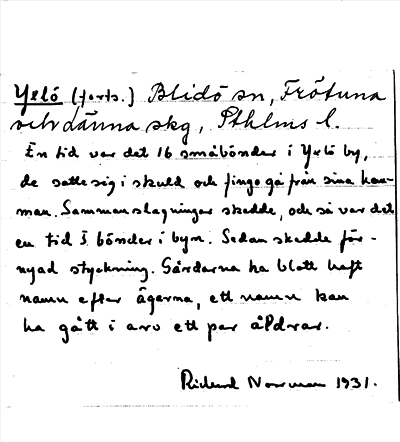 Yxlö (forts.) Blidö sn, Frötuna
och Länna skg, Sthlms l.
En tid var det 16 småbönder i Yxlö by,
de satte sig i skuld och fingo gå från sina hem-
man. Sammanslagningar skedde, och så var det
en tid 5 bönder i byn. Sedan skedde för-
nyad styckning. Gårdarna ha blott haft
namn efter ägarna, ett namn kan
ha gått i arv ett par åldrar.
Rickard Norrman 1931.